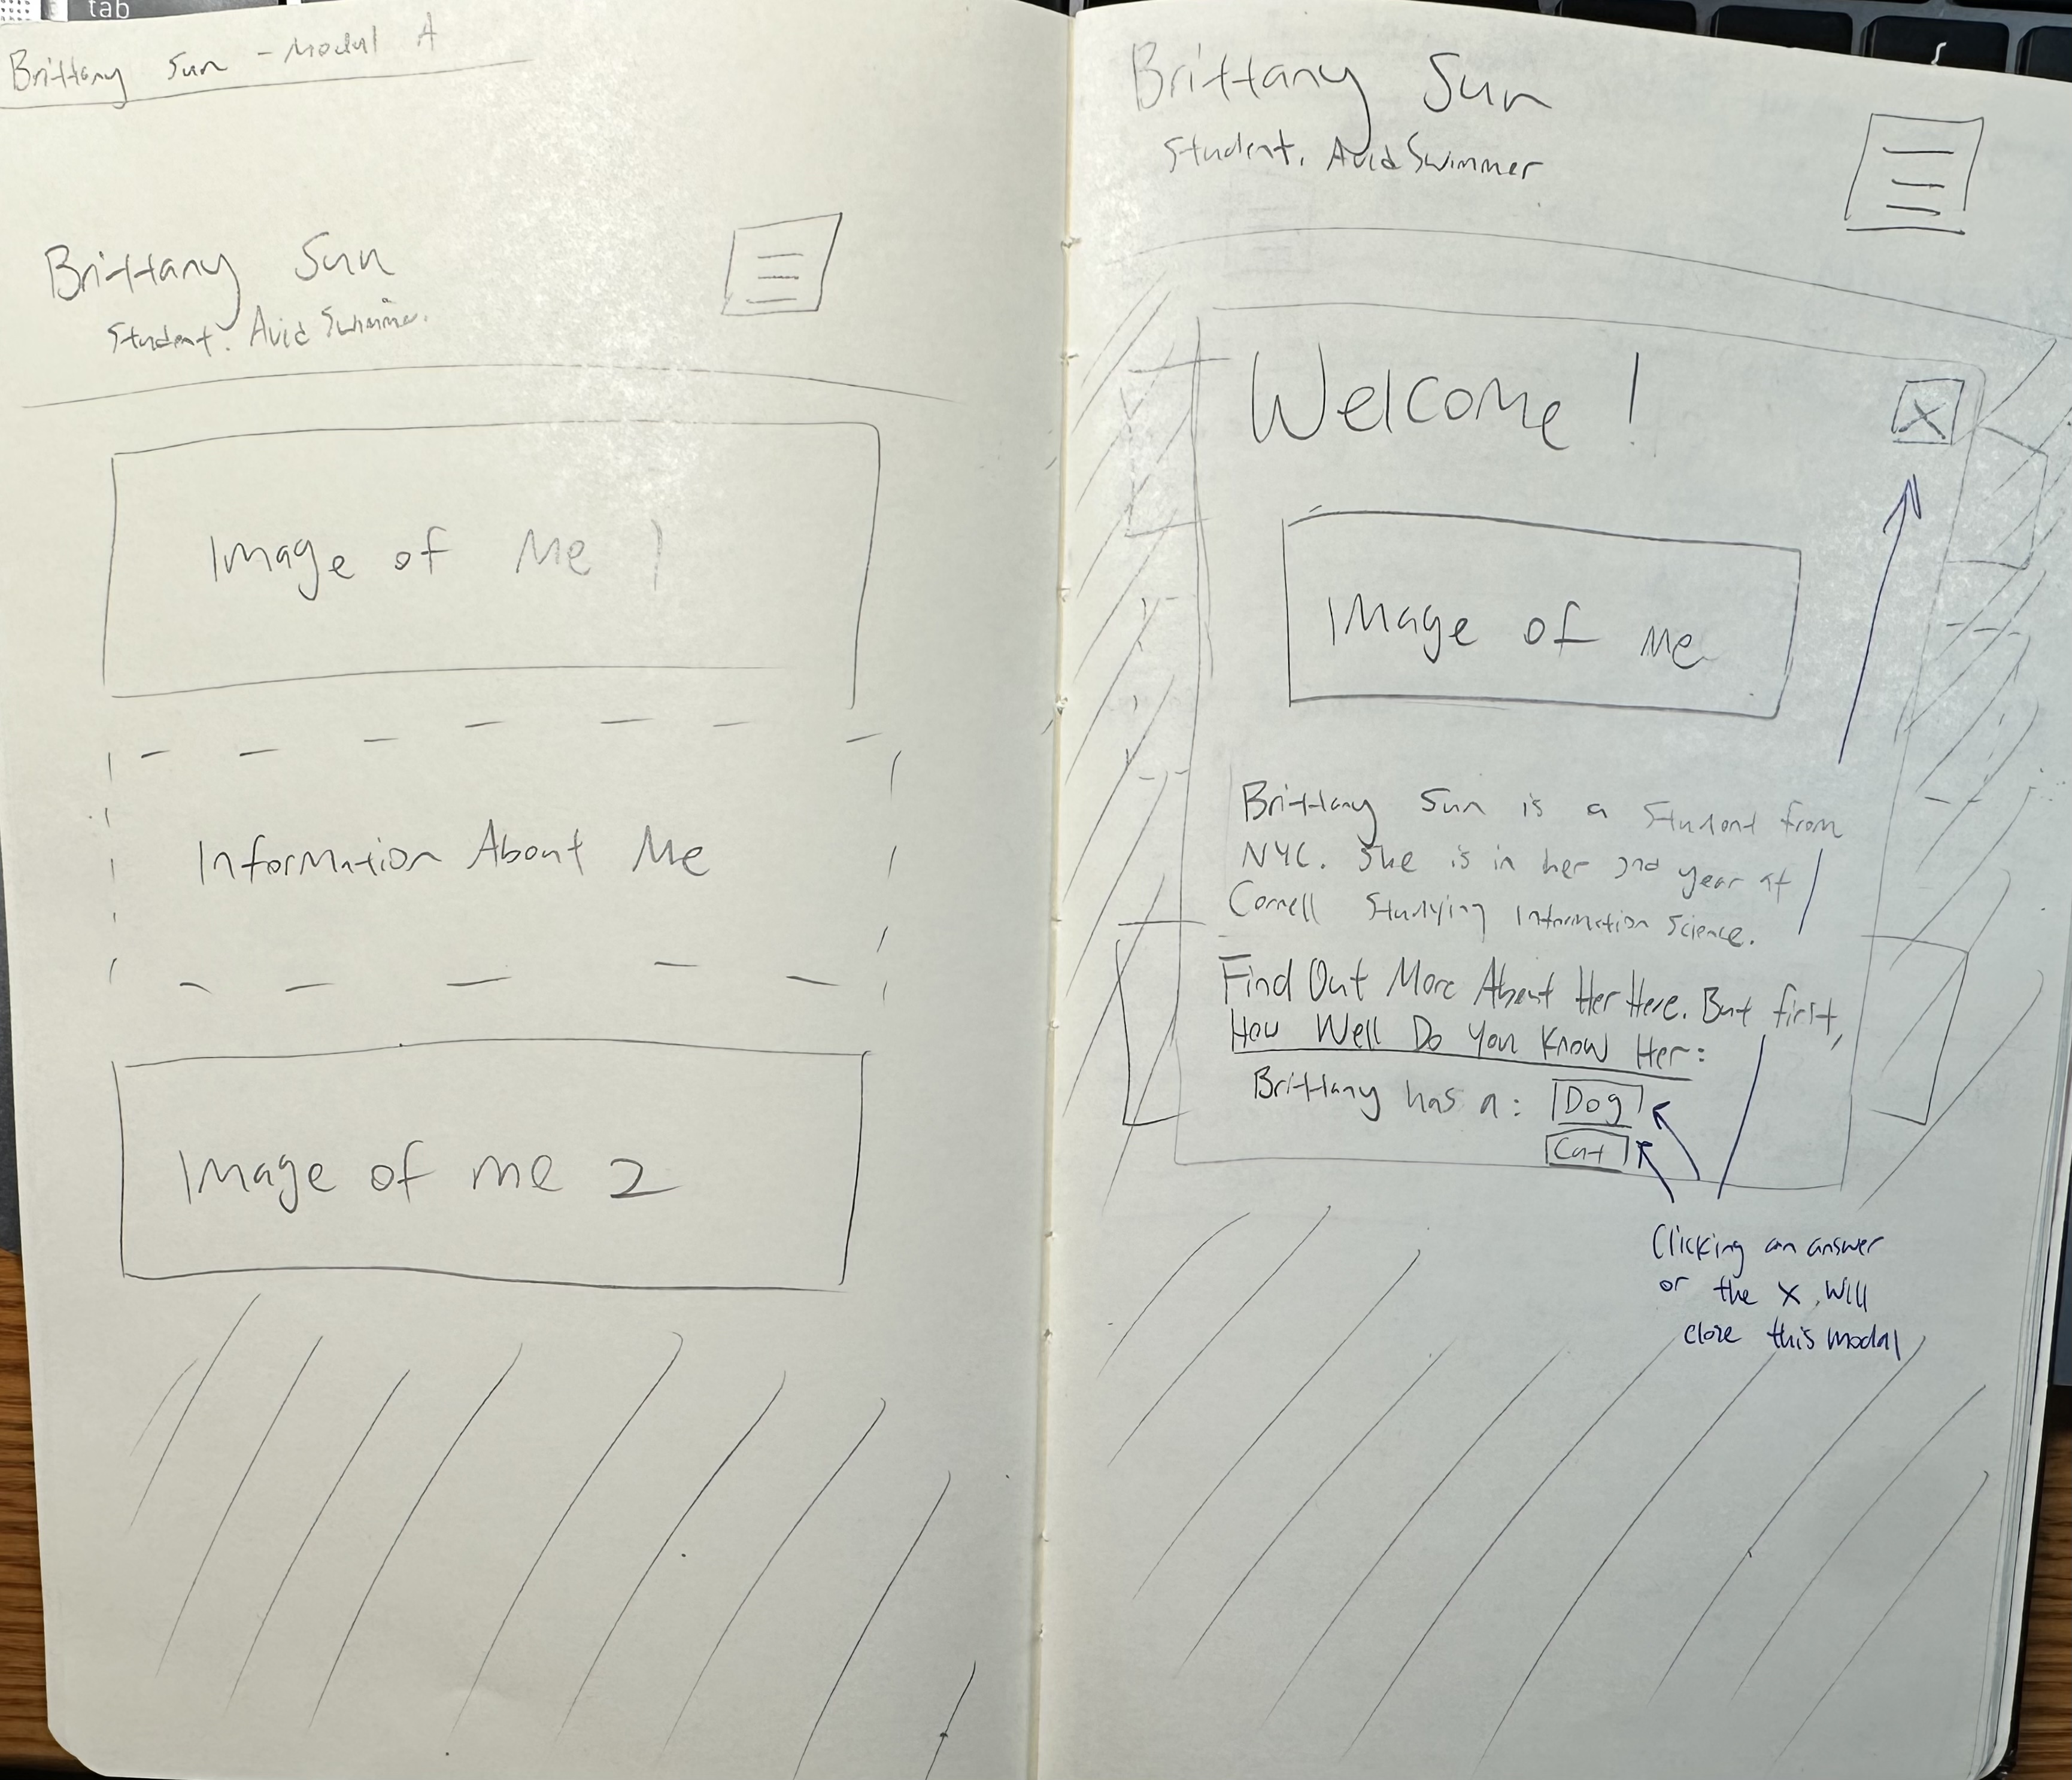 tab
Brittany Sun - Modal A
Brittany Sun
Student. Avid Swimmer.
Image of Me 1
Information About Me
Image of me 2
Brittany Sun
Student. Avid Swimmer
Welcome!
X
Image of me
Brittany Sun is a Student from
NYC. She is in her 2nd year at
Cornell Studying Information Science.
Find Out More About Her Here. But first,
How Well Do You Know Her:
Brittany has a: Dog
Cat
Clicking an answer
or the X will
close this modal